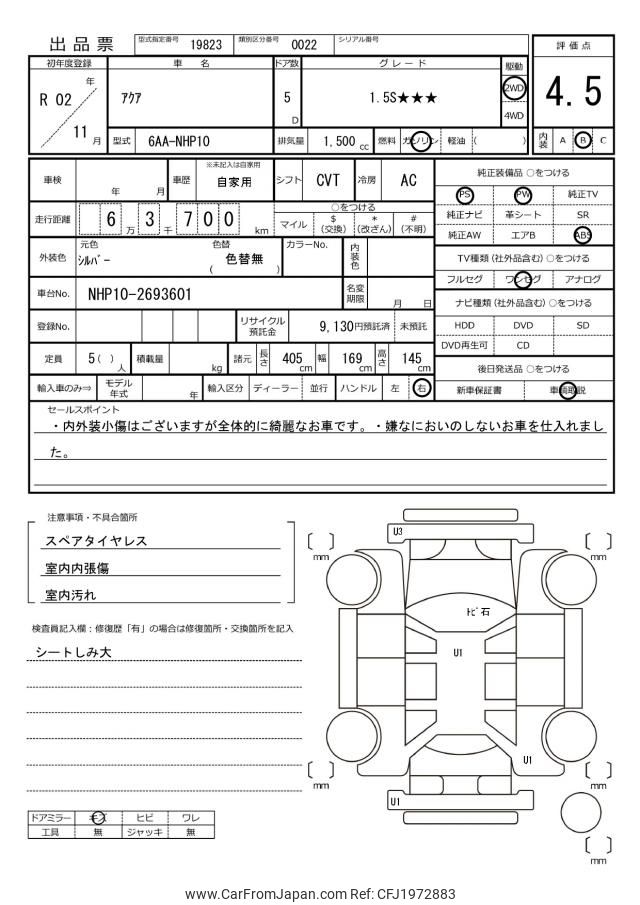 出品票
型式指定番号 19823 類別区分番号 0022 シリアル番号
評価点
4.5
内装 A B C
初年度登録 車名 ドア数 グレード 駆動
R 02 年 11 月
アクア 5 D 1.5S★★★ 2WD 4WD
型式 6AA-NHP10 排気量 1,500 cc 燃料 ガソリン 軽油 ( )
車検 年 月 車歴 ※未記入は自家用 自家用 シフト CVT 冷房 AC
走行距離 6 万 3 千 7 0 0 km
○をつける
マイル $ (交換) * (改ざん) # (不明)
外装色 元色 シルバー 色替 ( 色替無 ) カラーNo. 内装色
車台No. NHP10-2693601 名変期限 月 日
登録No. リサイクル預託金 9,130円預託済 未預託
定員 5 ( ) 人 積載量 kg 諸元 長さ 405 cm 幅 169 cm 高さ 145 cm
輸入車のみ⇒ モデル年式 年 輸入区分 ディーラー 並行 ハンドル 左 右
純正装備品 ○をつける
PS PW 純正TV
純正ナビ 革シート SR
純正AW エアB ABS
TV種類 (社外品含む) ○をつける
フルセグ ワンセグ アナログ
ナビ種類 (社外品含む) ○をつける
HDD DVD SD
DVD再生可 CD
後日発送品 ○をつける
新車保証書 車輌取説
セールスポイント
・内外装小傷はございますが全体的に綺麗なお車です。・嫌なにおいのしないお車を仕入れまし
た。
注意事項・不具合箇所
スペアタイヤレス
室内内張傷
室内汚れ
検査員記入欄：修復歴「有」の場合は修復箇所・交換箇所を記入
シートしみ大
U3
トビ石
U1
U1
U1
mm
mm
mm
mm
mm
ドアミラー キズ ヒビ ワレ
工具 無 ジャッキ 無
www.CarFromJapan.com Ref: CFJ1972883